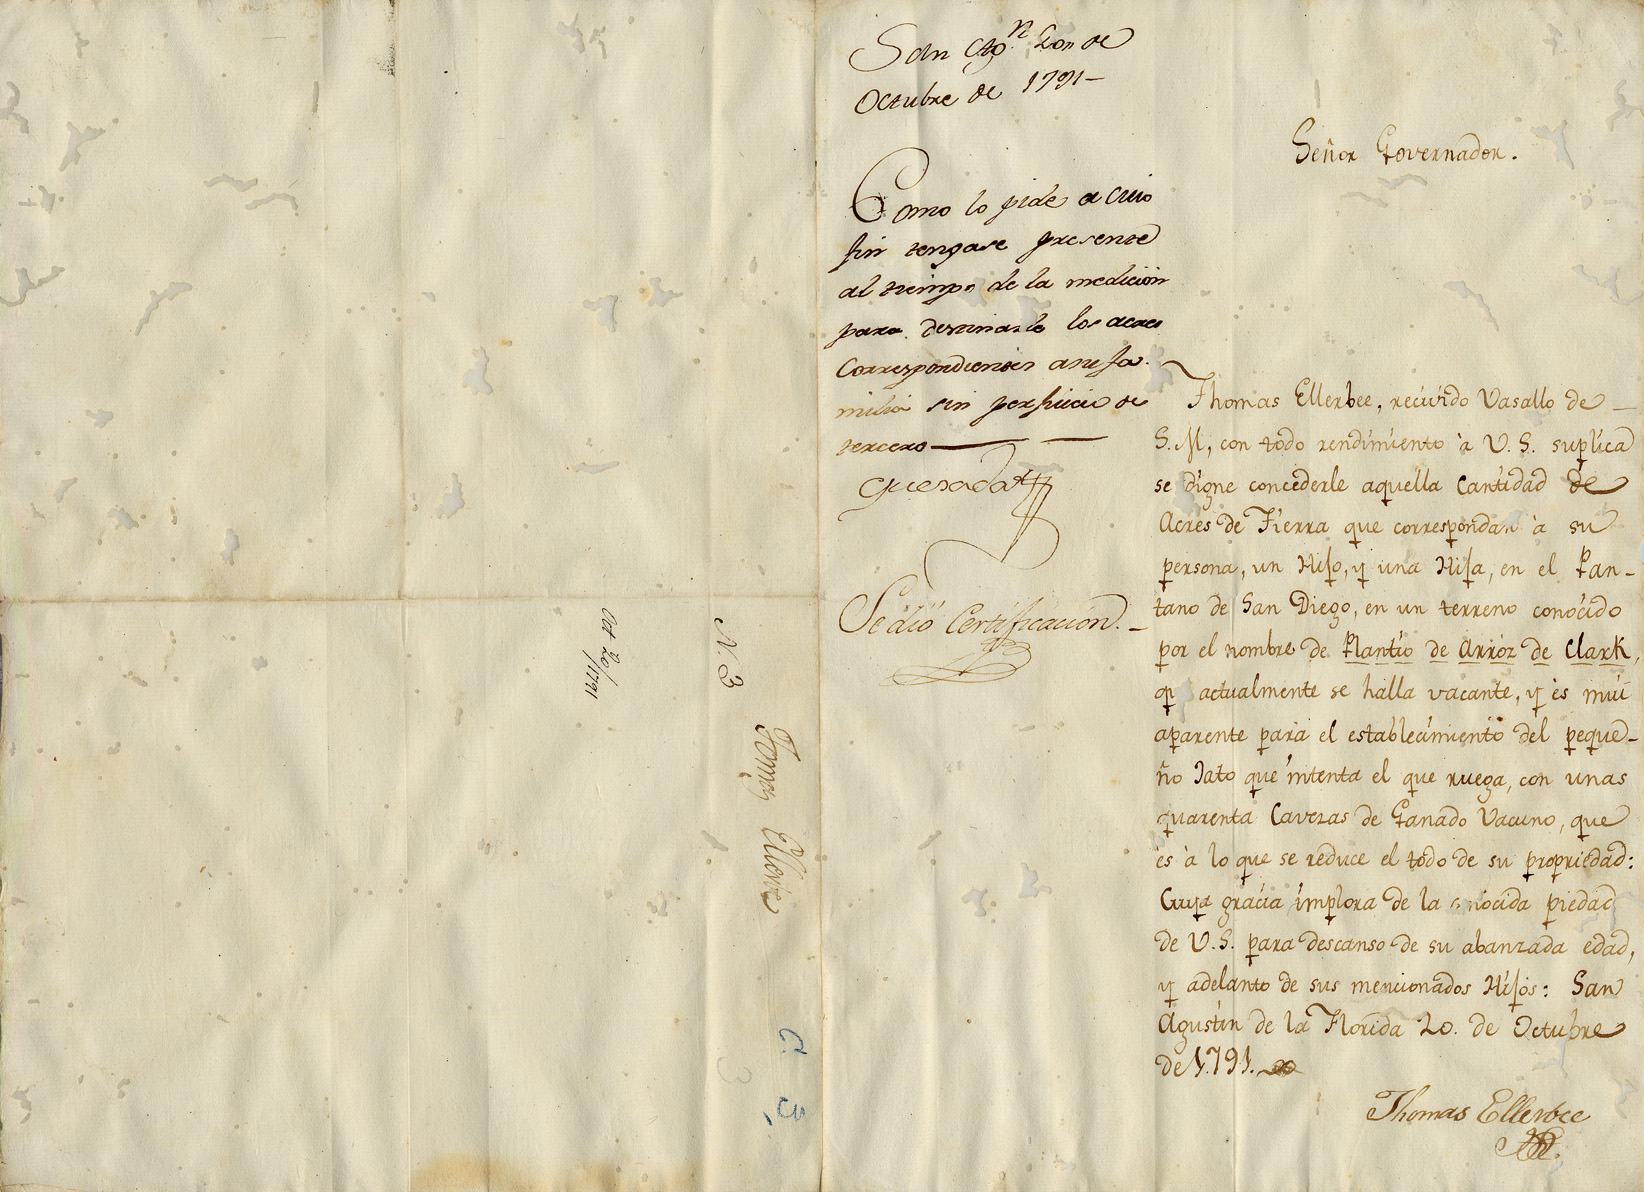 San Ag.n 20 de
Octubre de 1791
Como lo pide a cuio
fin tengase presente
al tiempo de la medicion
para destinarle los acres
Correspondientes a su fa-
milia sin perjuicio de
tercero
Quesada
Se dió Certificación.
Señor Governador.
Thomas Ellerbee, recivido Vasallo de
S. M, con todo rendimiento à V. S. suplica
se digne concederle aquella Cantidad de
Acres de Tierra que correspondan à su
persona, un Hijo, y una Hija, en el Pan-
tano de San Diego, en un terreno conocido
por el nombre de Plantio de Arroz de Clark,
q actualmente se halla vacante, y es mui
aparente para el establecimiento del peque-
ño Jato que intenta el que ruega, con unas
quarenta Cavezas de Ganado Vacuno, que
es à lo que se reduce el todo de su propriedad:
Cuya gracia implora de la conocida piedad
de V. S. para descanso de su abanzada edad,
y adelanto de sus mencionados Hijos: San
Agustin de la Florida 20. de Octubre
de 1.791.
Thomas Ellerbee
Oct 20/1791
N 3
Tomas Ellovis
C. 3